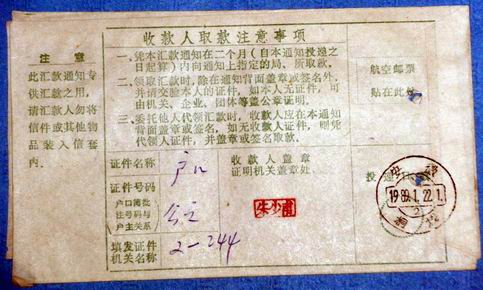 收款人取款注意事项
注意
此汇款通知专
供汇款之用,
请汇款人勿将
信件或其他物
品装入信套
内。
一、凭本汇款通知在二个月(自本通知投递之
日起算)内向通知上指定的局、所取款。
二、领取汇款时,除在通知背面盖章或签名外,
并请交验本人的证件,如本人无证件,可
由机关、企业、团体等盖公章证明。
三、委托他人代领汇款时,收款人应在本通知
背面盖章或签名,如无收款人证件,则凭
代领人证件,并盖章或签名取款。
航空邮票
贴在此处
证件名称 户口
收款人盖章
证明机关盖章处
投递
证件号码
户口簿批
注号码与
户主关系
填发证件
机关名称
2-244
1989.1.22.1
2